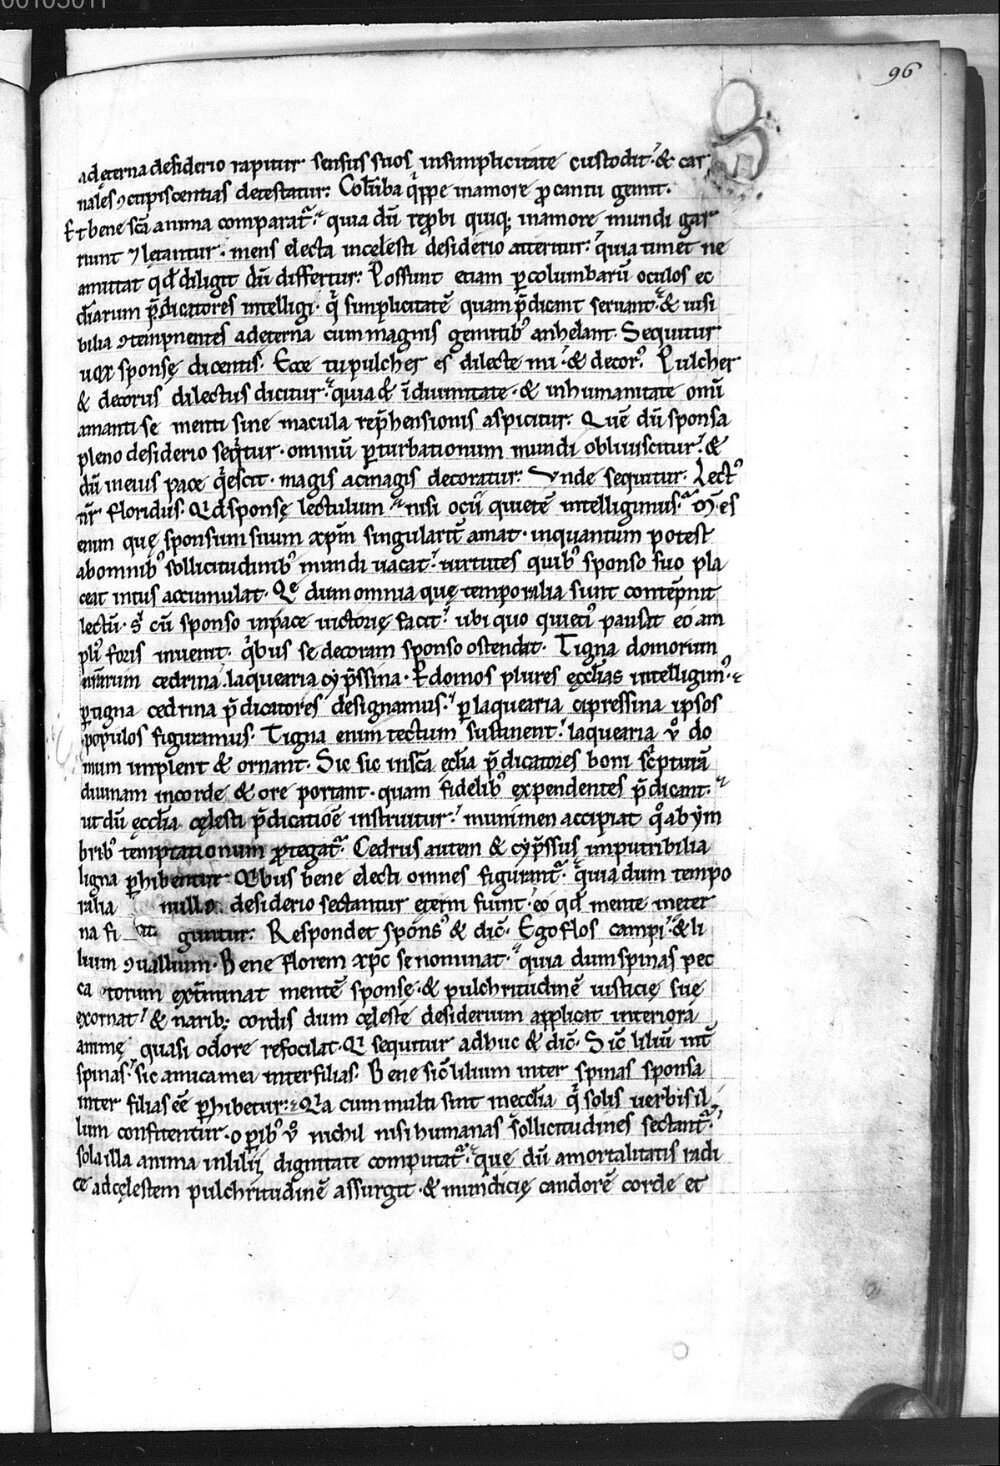 00103011
96
adęterna desiderio rapitur sensus suos insimplicitate custodit. & car
nales ↄcupiscentias detestatur. Colūba q̈ppe inamore ꝓ cantu gemit.
Et bene scā anima comparat̄. quia dū rep̄bi quiq; inamore mundi gar
riunt ⁊ letantur. mens electa incęlesti desiderio atteritur. quia timet ne
amittat qd̄ diligit dū differtur. Possunt etiam ꝑ columbarū oculos ec
cl̄iarum p̄dicatores intelligi. q̈ simplicitatē quam p̄dicant seruant. & uisi
bilia ↄtempnentes adeterna cum magnis gemitib᾿ anhelant. Sequitur
uox sponsę dicentis. Ecce tu pulcher es dilecte mi. & decor᾿. Pulcher
& decorus dilectus dicitur. quia & ī diuinitate. & inhumanitate omī
amanti se menti sine macula rep̄hensionis aspicitur. Quē dū sponsa
pleno desiderio seq̈tur. omniū ꝑturbationum mundi obliuiscitur. &
dū ineius pace q̈escit. magis acmagis decoratur. Vnde sequitur. Lect᾿
nr̄ floridus. Qd sponsę lectulum nisi ocii quietē intelligimus. Om̄es
enim quę sponsum suum xp̄m singularit̄ amat. inquantum potest
abomnib᾿ sollicitudinib᾿ mundi uacat. uirtutes quib᾿ sponso suo pla
ceat intus accumulat. Et dum omnia quę temporalia sunt contēpnit
lectū. s; cū sponso inpace uictorię facit. ubi quo quieti᾿ pausat eo am
pli᾿ foris inuenit. q̈bus se decoram sponso ostendat. Tigna domorum
nr̄arum cedrina. laquearia cyp̄ssina. Ꝑ domos plures ęccl̄ias intelligim᾿.
ꝑ tigna cedrina p̄dicatores designamus. ꝑ laquearia cipressina ipsos
populos figuramus. Tigna enim tectum sustinent. laquearia ů do
mum implent & ornant. Sic sic inscā ęccl̄ia p̄dicatores boni sc̄pturā
diuinam incorde & ore portant. quam fidelib᾿ expendentes p̄dicant.
ut dū ęccl̄ia cęlesti p̄dicatiōe instruitur. munimen accipiat q̊ ab ym
brib᾿ temptationum ꝓtegat̄. Cedrus autem & cyp̄ssus imputribilia
ligna ꝑhibentur. Q̈bus bene electi omnes figurant̄. quia dum tempo
ralia nullo desiderio sectantur
na fi guntur. Respondet spons᾿ & dic̄. Ego flos campi. & li
lium ↄuallium. Bene florem xp̄c se nominat. quia dum spinas pec
ca torum ext̄minat mentē sponsę. & pulchritudinē iusticię suę
exornat. & narib; cordis dum cęleste desiderium applicat interiora
animę quasi odore refocilat. Et sequitur adhuc & dic̄. Sic̄ liliū int̄
spinas. sic amica mea inter filias. Bene sic̄ lilium inter spinas sponsa
inter filias eē ꝑhibetur. Q̇a cum multi sint ineccl̄ia q̈ solis uerbis il
lum confitentur. oꝑib᾿ ů nichil nisi humanas sollicitudines sectant̄.
sola illa anima inlilii dignitate computat̄. quę dū amortalitatis radi
ce ad cęlestem pulchritudinē assurgit. & mundicię candorē corde et